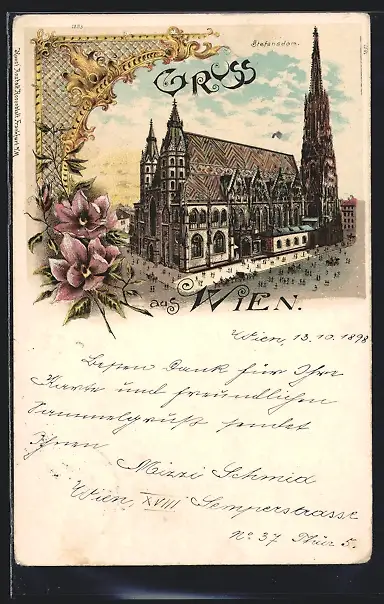 Stefansdom.
GRUSS
aus WIEN.
Wien, 13.10.1898
Besten Dank für Ihre
Karte und freundlichen
Sammelgruß sendet
Ihnen
Mizzi Schmid
Wien, XVIII Semperstrasse
No 37 Thür 5.